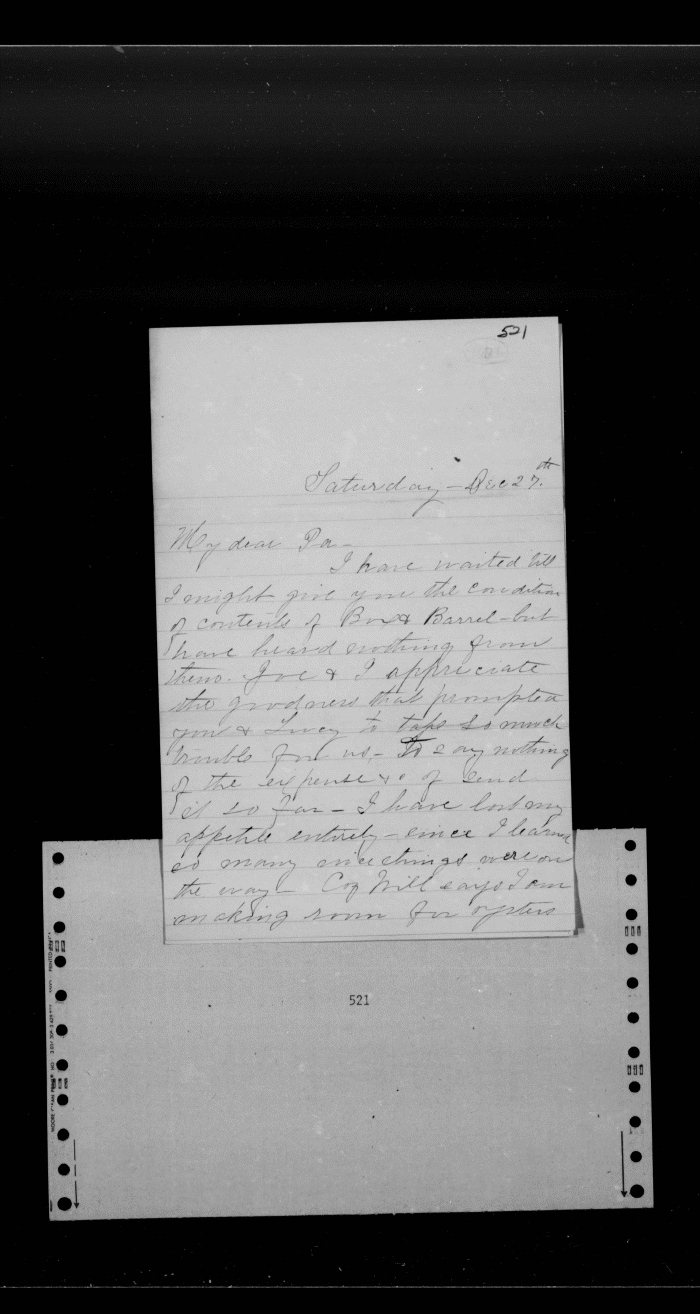 521
Saturday - Dec 27th.
My dear Pa -
I have waited till
I might give you the condition
of contents of Box & Barrel - but
have heard nothing from
them. Joe & I appreciate
the goodness that prompted
you & Lucy to take so much
trouble for us, - To say nothing
of the expense &c of send
it so far - I have lost my
appetite entirely - since I learned
so many nice things were on
the way - Will says I am
making room for oysters
521